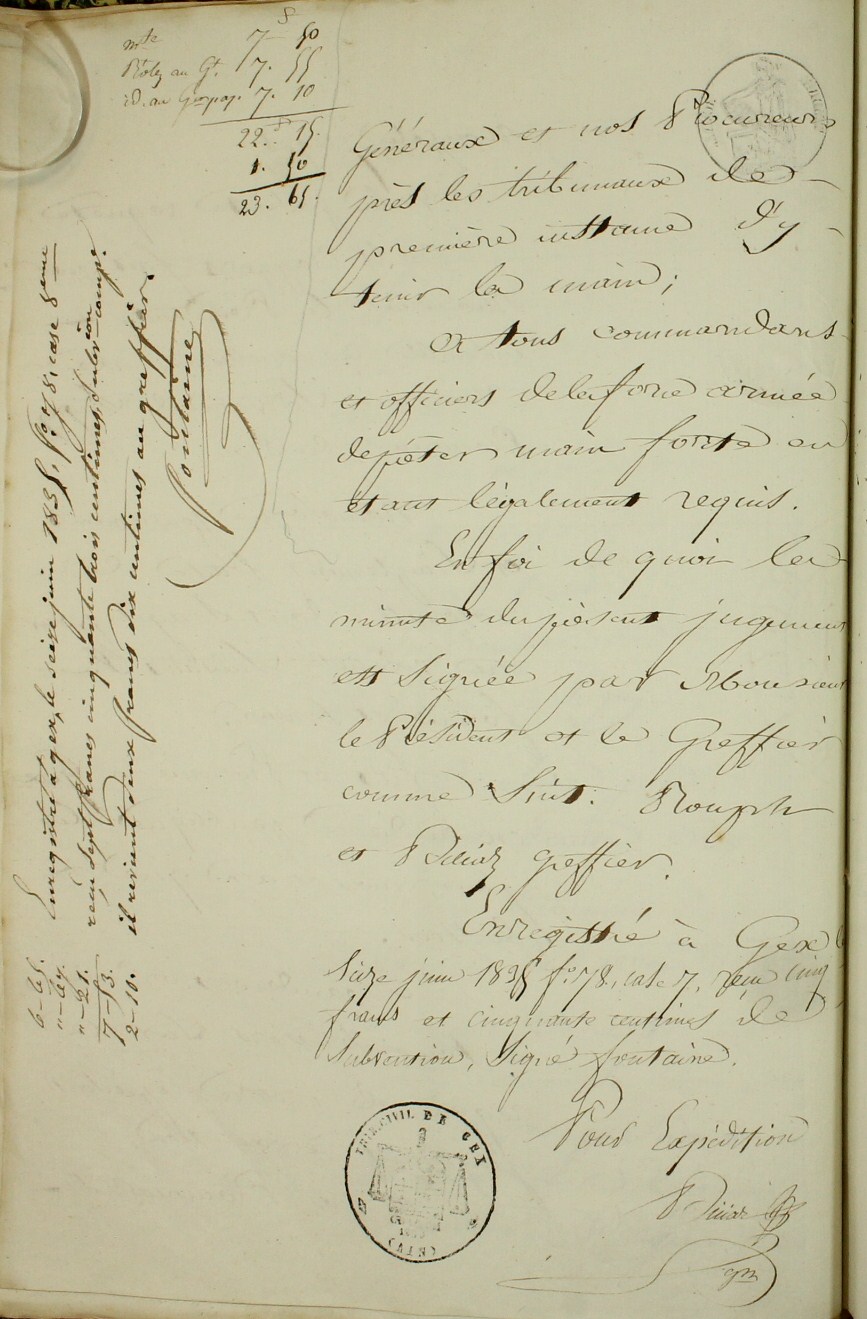 mte 7 50
Rôle au Gt. 7. 55
id. au 7. 10
22. 15.
1. 50
23. 65.
Généraux et nos Procureurs
près les tribunaux de
première instance d'y
tenir la main;
et tous commandans
et officiers de la force armée
de prêter main forte en
étant légalement requis.
En foi de quoi la
minute du présent jugement
est signée par Monsieur
le Président et le Greffier
comme suit. Rouph
et greffier.
Enregistré à Gex le
seize juin 1835 fo. 78, case 7, reçu cinq
francs et cinquante centimes de
subvention, signé fontaine.
Pour Expédition
TRIB. CIVIL DE GEX
(AIN)
Enregistré à gex, le seize juin 1835, fo. 78, case 8eme
reçu sept francs cinquante trois centimes, subvion comp.
il revient deux francs dix centimes au greffier.
fontaine
6-65.
"-67.
"-21.
7-53.
2-10.